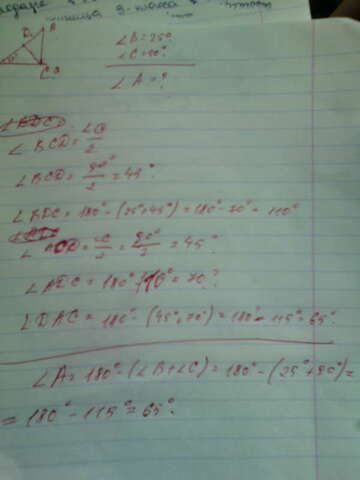 D A
C
∠B = 25°
∠C = 90°
∠A = ?
∠BCD = ∠C/2
∠BCD = 90°/2 = 45°
∠BDC = 180° - (25°+45°) = 180° - 70° = 110°
∠ACD = ∠C/2 = 90°/2 = 45°
∠ADC = 180° - 110° = 70°
∠DAC = 180° - (45°+70°) = 180° - 115° = 65°
∠A = 180° - (∠B+∠C) = 180° - (25°+90°) =
= 180° - 115° = 65°